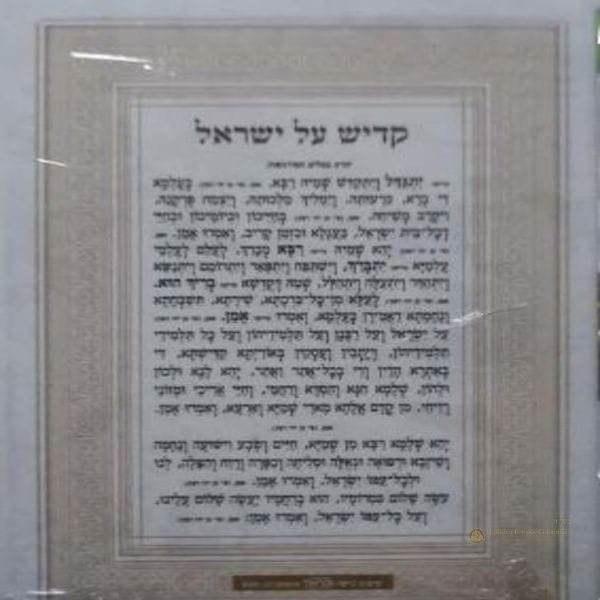 קדיש על ישראל
יִתְגַּדַּל וְיִתְקַדַּשׁ שְׁמֵיהּ רַבָּא. בְּעָלְמָא
דִּי בְרָא, כִּרְעוּתֵהּ, וְיַמְלִיךְ מַלְכוּתֵהּ, וְיַצְמַח פֻּרְקָנֵהּ,
וִיקָרֵב מְשִׁיחֵהּ. בְּחַיֵּיכוֹן וּבְיוֹמֵיכוֹן וּבְחַיֵּי
דְכָל־בֵּית יִשְׂרָאֵל, בַּעֲגָלָא וּבִזְמַן קָרִיב, וְאִמְרוּ אָמֵן.
יְהֵא שְׁמֵיהּ רַבָּא מְבָרַךְ, לְעָלַם לְעָלְמֵי
עָלְמַיָּא יִתְבָּרַךְ, וְיִשְׁתַּבַּח וְיִתְפָּאַר וְיִתְרוֹמַם וְיִתְנַשֵּׂא
וְיִתְהַדָּר וְיִתְעַלֶּה וְיִתְהַלָּל, שְׁמֵהּ דְּקֻדְשָׁא בְּרִיךְ הוּא.
לְעֵלָּא מִן־כָּל־בִּרְכָתָא, שִׁירָתָא, תֻּשְׁבְּחָתָא
וְנֶחֱמָתָא דַּאֲמִירָן בְּעָלְמָא, וְאִמְרוּ אָמֵן.
עַל יִשְׂרָאֵל וְעַל רַבָּנָן וְעַל תַּלְמִידֵיהוֹן וְעַל כָּל תַּלְמִידֵי
תַלְמִידֵיהוֹן, דְּיָתְבִין וְעָסְקִין בְּאוֹרַיְתָא קַדִּשְׁתָּא, דִּי
בְאַתְרָא הָדֵין וְדִי בְכָל־אֲתַר וַאֲתַר, יְהֵא לָנָא וּלְכוֹן
וּלְהוֹן, שְׁלָמָא חִנָּא וְחִסְדָּא וְרַחֲמֵי, וְחַיֵּי אֲרִיכֵי וּמְזוֹנֵי
רְוִיחֵי, מִן קֳדָם אֱלָהָא מָארֵי שְׁמַיָּא וְאַרְעָא, וְאִמְרוּ אָמֵן.
יְהֵא שְׁלָמָא רַבָּא מִן שְׁמַיָּא, חַיִּים וְשָׂבָע וִישׁוּעָה וְנֶחָמָה
וְשֵׁיזָבָא וּרְפוּאָה וּגְאֻלָּה וּסְלִיחָה וְכַפָּרָה וְרֶוַח וְהַצָּלָה, לָנוּ
וּלְכָל־עַמּוֹ יִשְׂרָאֵל, וְאִמְרוּ אָמֵן.
עֹשֶׂה שָׁלוֹם בִּמְרוֹמָיו, הוּא בְּרַחֲמָיו יַעֲשֶׂה שָׁלוֹם עָלֵינוּ,
וְעַל כָּל־עַמּוֹ יִשְׂרָאֵל, וְאִמְרוּ אָמֵן: